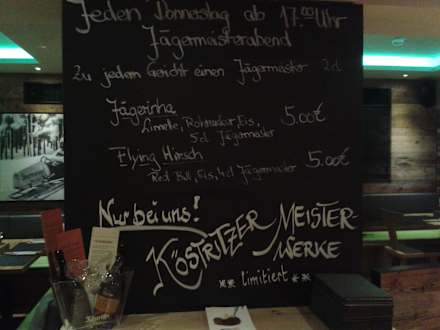 Jeden Donnerstag ab 17.00 Uhr
Jägermeisterabend
Zu jedem Gericht einen Jägermeister 2cl
Jägerinha 5.00€
Limette, Rohrzucker, Eis,
5cl Jägermeister
Flying Hirsch 5.00€
Red Bull, Eis, 4cl Jägermeister
Nur bei uns!
KÖSTRITZER MEISTER-
WERKE
** limitiert **